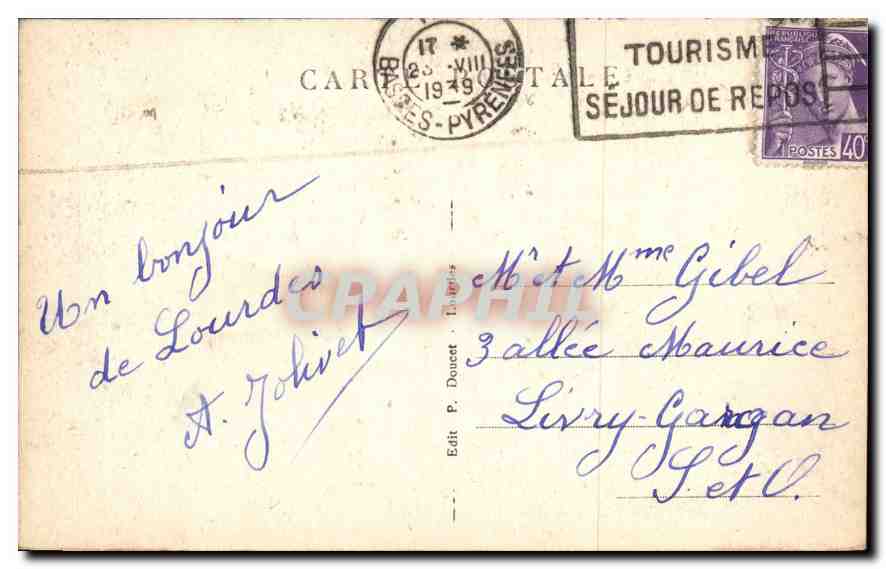 CARTE POSTALE
17 *
23 -VIII
1949
BASSES-PYRENEES
TOURISME
SÉJOUR DE REPOS
REPUBLIQUE
FRANÇAISE
POSTES 40c
Un bonjour
de Lourdes
A. Jolivet
Edit P. Doucet - Lourdes
Mr et Mme Gibel
3 allée Maurice
Livry-Gargan
S et O.
CPAPHIL